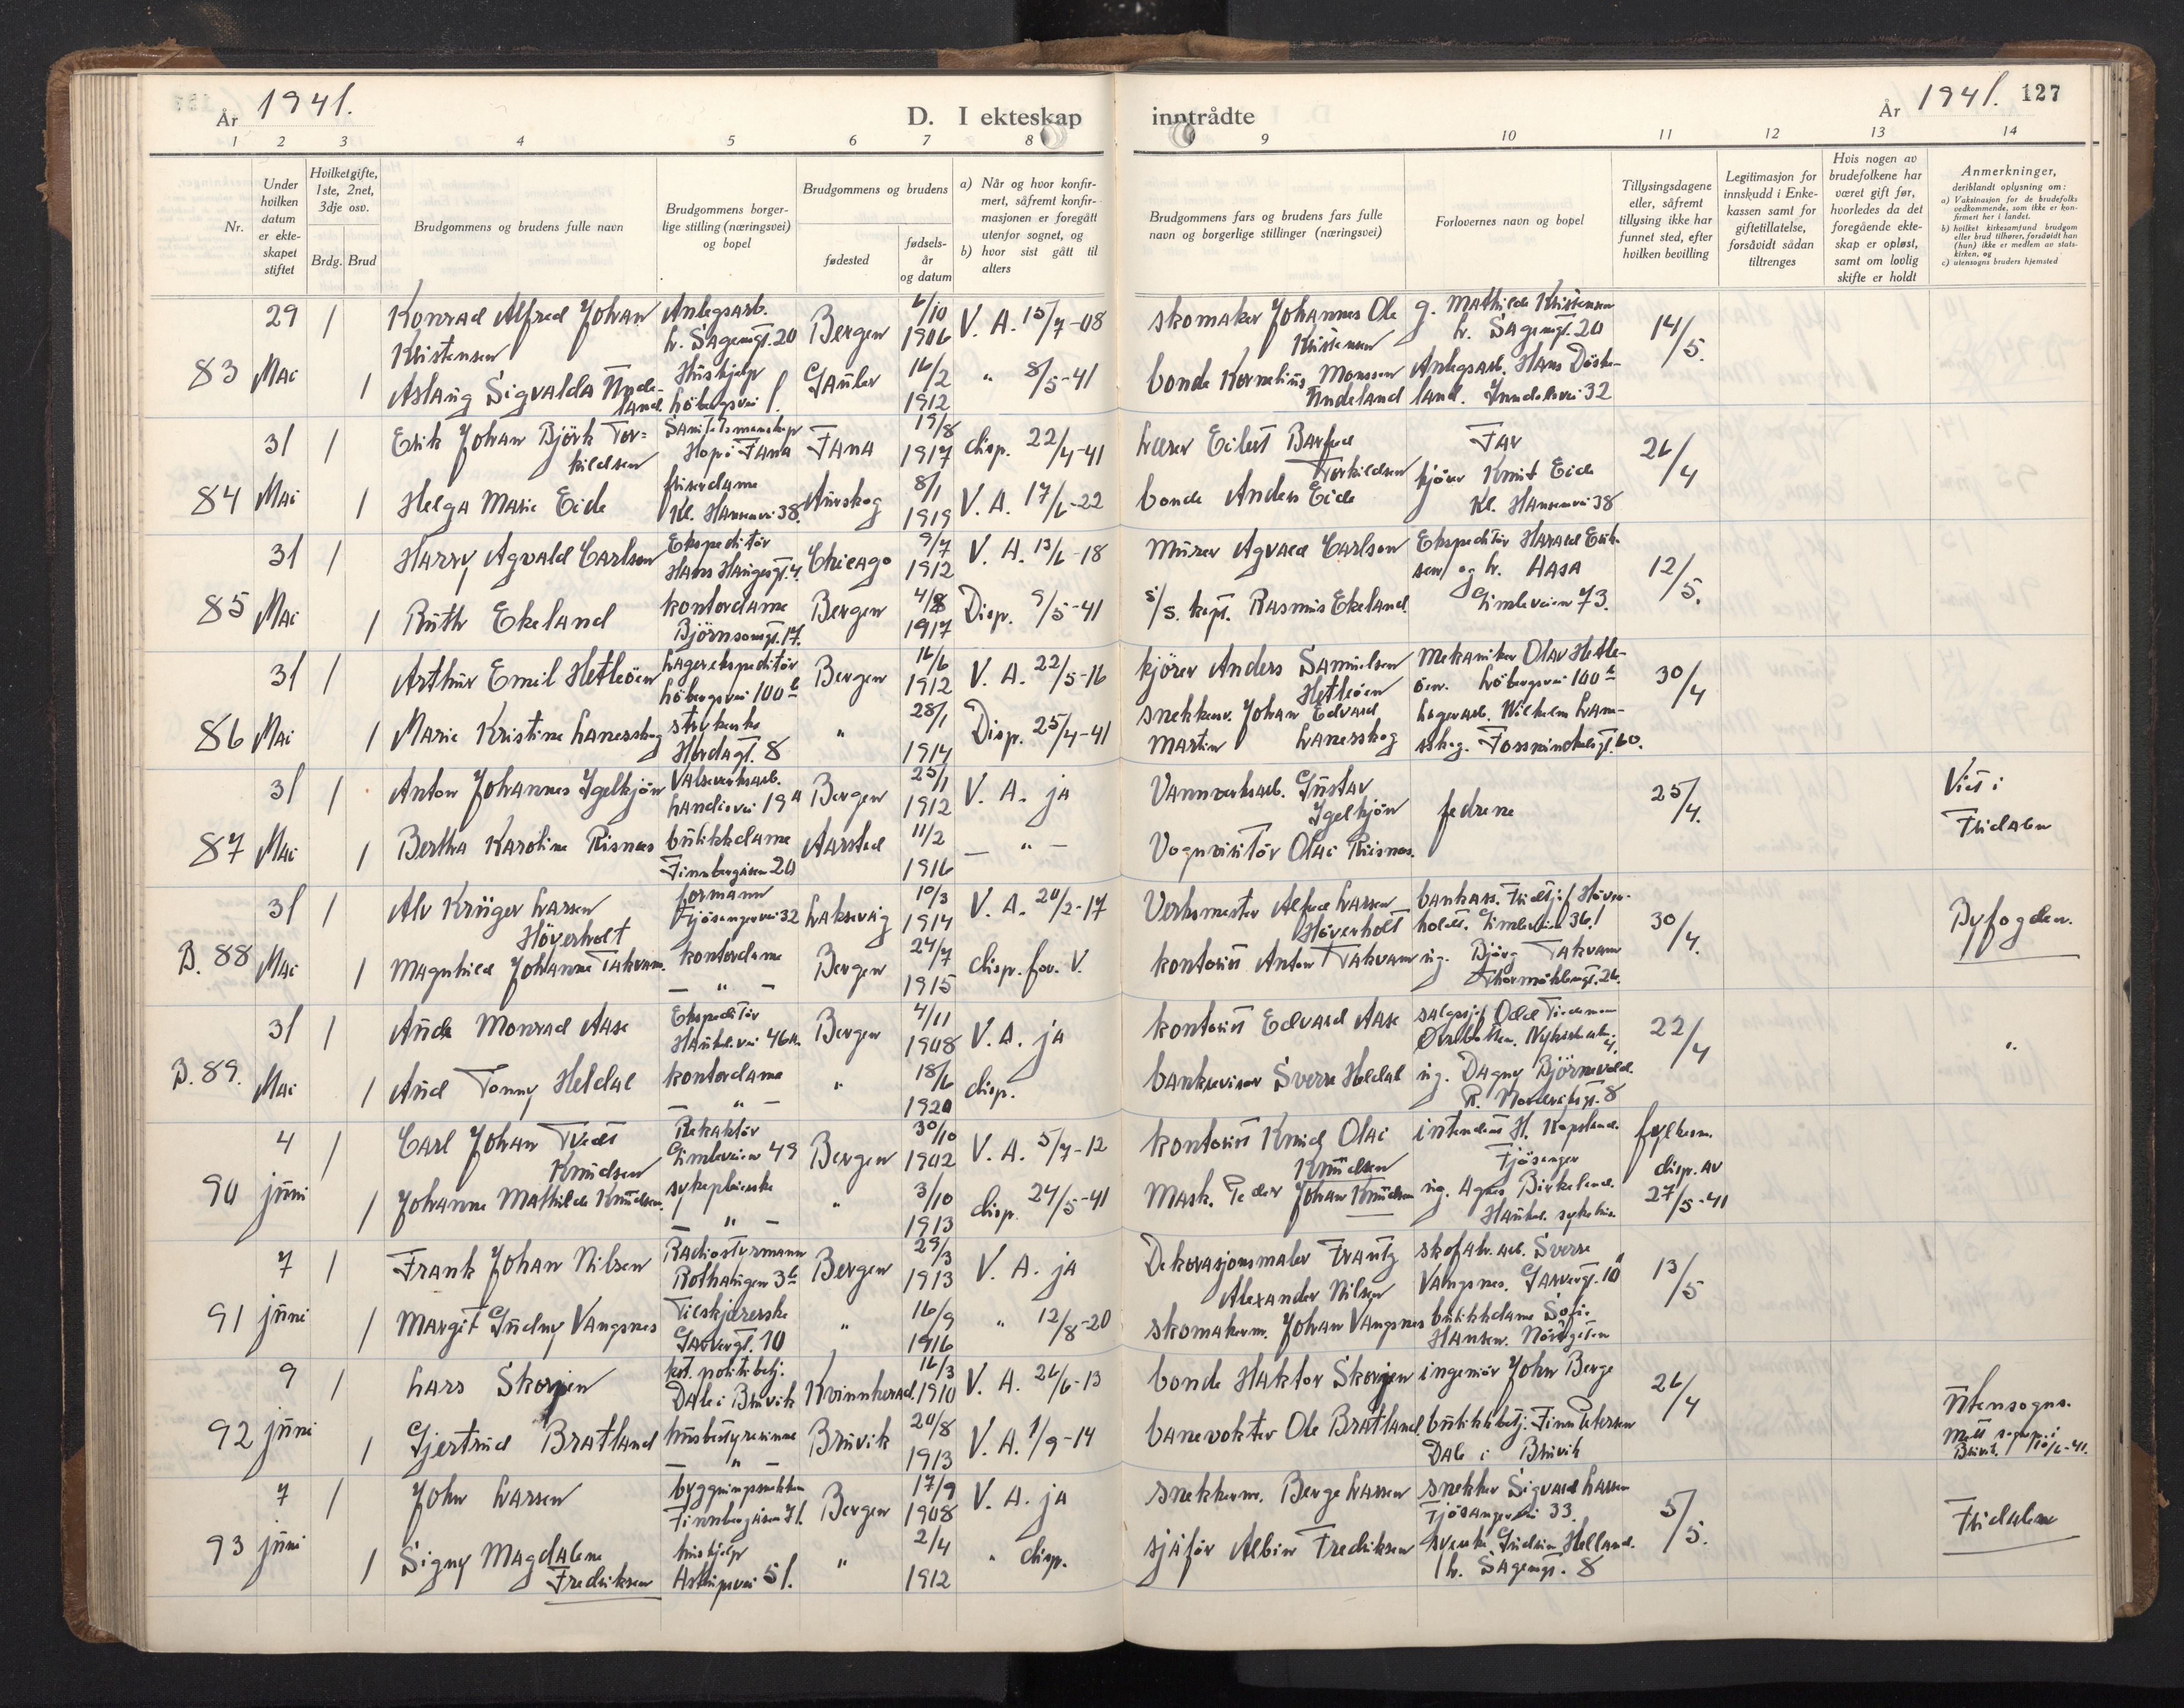 År 1941.
D. I ekteskap inntrådte
År 1941. 127
1 2 3 4 5 6 7 8 9 10 11 12 13 14
Nr.
Under hvilken datum er ekteskapet stiftet
Hvilket gifte, 1ste, 2net, 3dje osv.
Brdg. Brud
Brudgommens og brudens fulle navn
Brudgommens borgerlige stilling (næringsvei) og bopel
Brudgommens og brudens
fødested
fødselsår og datum
a) Når og hvor konfirmert, såfremt konfirmasjonen er foregått utenfor sognet, og
b) hvor sist gått til alters
Brudgommens fars og brudens fars fulle navn og borgerlige stillinger (næringsvei)
Forlovernes navn og bopel
Tillysingsdagene eller, såfremt tillysing ikke har funnet sted, efter hvilken bevilling
Legitimasjon for innskudd i Enkekassen samt for giftetillatelse, forsåvidt sådan tiltrenges
Hvis nogen av brudefolkene har været gift før, hvorledes da det foregående ekteskap er opløst, samt om lovlig skifte er holdt
Anmerkninger,
deriblandt oplysning om:
a) Vaksinasjon for de brudefolks vedkommende, som ikke er konfirmert her i landet.
b) hvilket kirkesamfund brudgom eller brud tilhører, forsåvidt han (hun) ikke er medlem av statskirken, og
c) utensogns bruders hjemsted
83 29 Mai 1 Konrad Alfred Johan Kristensen Anlegsarb. L. Sagengt. 20 Bergen 6/10 1906 V. A. 15/7-08 skomaker Johannes Ole Kristensen g. Mathilde Kristensen L. Sagengt. 20 14/5.
1 Aslaug Sigvalda Undeland Huskjelp Löbergsvei 1. Gaular 16/2 1912 " 8/5-41 bonde Kornelius Monssen Undeland Anlegsarb. Hans Döskeland.
84 31 Mai 1 Erik Johan Björk Torkildsen Hop i Fana Fana 19/8 1917 disp. 22/4-41 lærer Eilert Torkildsen Far 26/4
1 Helga Marie Eide friserdame Kl. Hansensvei 38. Aurskog 8/1 1919 V. A. 17/6-22 bonde Anders Eide kjörer Knut Eide Kl. Hansensvei 38
85 31 Mai 1 Harry Agvald Carlson Ekspeditör Hans Haugesgt. 4. Chicago 9/7 1912 V. A. 13/6-18 Murer Agvald Carlson Ekspeditör Harald Eriksen og L. Aasa Gimleveien 73. 12/5.
1 Ruth Ekeland kontordame Björnsonsgt. 17. Bergen 4/8 1917 Disp. 9/5-41 s/s. kapt. Rasmus Ekeland
86 31 Mai 1 Arthur Emil Hetleöen Lagerekspeditör Löbergsvei 100 b Bergen 16/6 1912 V. A. 22/5-16 kjörer Anders Samuelsen Hetleöen Mekaniker Olav Hetleöen. Löbergsvei 100 b 30/4
1 Marie Kristine Lanesskog Hordagt. 8 " 28/1 1914 Disp. 25/4-41 snekkerv. Johan Edvard Martin Lanesskog Lagerarb. Wilhelm Lanesskog.
87 31 Mai 1 Anton Johannes Igelkjön Valseverksarb. Landåsvei 19 A Bergen 25/1 1912 V. A. ja Vannverksarb. Gustav Igelkjön fedrene 25/4. Viet i Fridalen
1 Bertha Karoline Risnæs butikkdame Finnbergåsen 20 Aarstad 11/2 1916 — " — Vognvisitör Olai Riisnæs.
B. 88 31 Mai 1 Alv Krüger Larsen Höyerholt formann Fjösangervei 32 Laksevåg 10/3 1914 V. A. 20/2-17 Verksmester Alfred Larsen Höverholt 30/4. Byfogden.
1 Magnhild Johanne Takvam. kontordame — " — Bergen 24/7 1915 disp. for. V. kontorist Anton Takvam ug. Björg Takvam Thormöhlensgt. 26.
B. 89. 31 Mai 1 Aude Monrad Aase Ekspeditör Haukel. vei 46 a. Bergen 4/11 1908 V. A. ja kontorist Edvard Aase salgssjef Odd 22/4 "
1 Aud Tonny Heldal kontordame — " — " 18/6 1920 disp. bankrevisor Sverre Heldal ug. Dagny Björnevold
90 4 juni 1 Carl Johan Tvedt Knudsen Redaktör Gimleveien 49 Bergen 30/10 1902 V. A. 5/7-12 kontorist Knud Olai Knudsen intendent H. Kopsland. Fjösanger fylkesm. disp. av 27/5-41
1 Johanne Mathilde Knudsen. sykepleierske — " — " 3/10 1913 disp. 24/5-41 Mask. Peder Johan Knudsen ug. Agnes Birkeland. Haukel. sykehus.
91 7 juni 1 Frank Johan Nilsen Radiostyrmann Rothaugen 3 b Bergen 29/3 1913 V. A. ja Dekorasjonsmaler Frantz Alexander Nilsen skofabr. arb. Sverre Vangsnes. Garvergt. 10 13/5
1 Margit Gudny Vangsnes Tilskjærerske Garvergt. 10 " 16/9 1916 " 12/8-20 skomakerm. Johan Vangsnes butikkdame Sofie Hansen.
92 9 juni 1 Lars Skorpen kst. politibetj. Dale i Bruvik Kvinnherad. 16/3 1910 V. A. 26/6-13 bonde Haktor Skorpen ingeniör John Berge 26/4 Utensogns.
1 Gjertrud Bratland husbestyrerinne — " — Bruvik 20/8 1913 V. A. 1/9-14 banevokter Ole Bratland. butikkbetj. Finn Petersen Dale i Bruvik
93 7 juni 1 John Larsen bygningssnekker Finnbergåsen 71. Bergen 17/9 1908 V. A. ja snekkerm. Berge Larsen snekker Sigvard Larsen Fjösangervei 33. 5/5. Fridalen
1 Signy Magdalene Fredriksen huskjelp Astrupsvei 51. " 2/4 1912 " disp. sjåför Albin Fredriksen L. Sagengt. 8